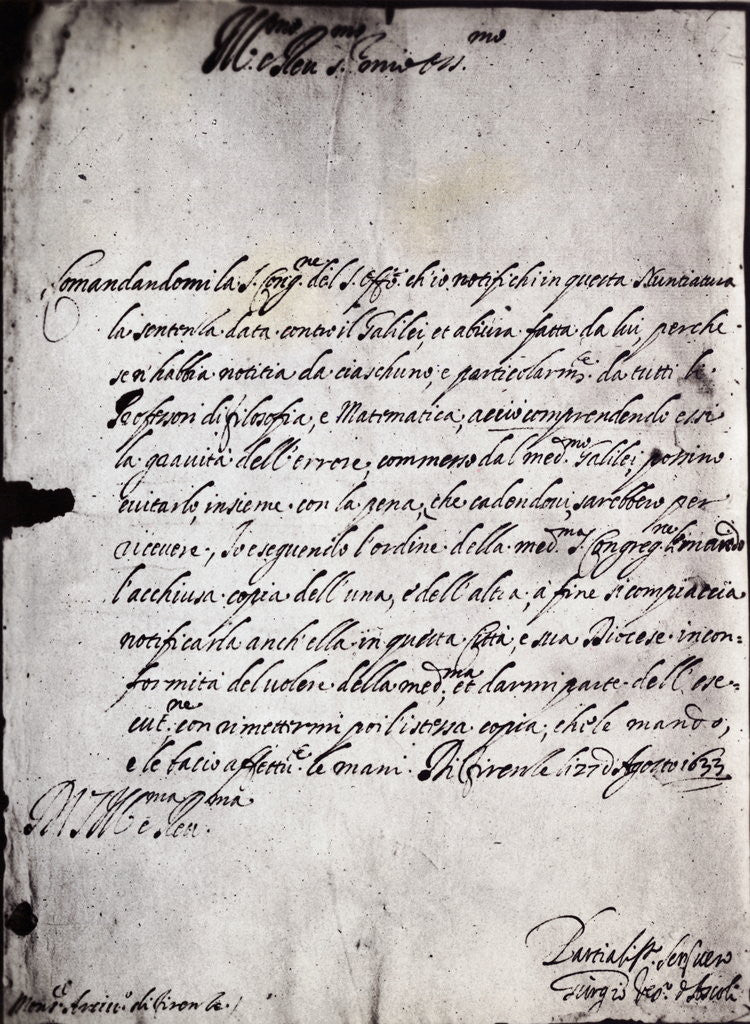 Ill.mo e Rev.mo S.r mio Oss.mo
Comandandomi la S. Cong.ne del S. Offo. ch'io notifichi in questa Nuntiatura
la sentenza data contro il Galilei, et abiura fatta da lui, perche
se n'habbia notitia da ciaschuno, e particolarm.te da tutti li
Professori di filosofia, e Matematica, accio comprendendo essi
la gravità dell'errore, commesso dal med.mo Galilei, possino
evitarlo, insieme con la pena, che cadendovi, sarebbero per
ricevere, Io eseguendo l'ordine della med.ma S. Congreg.ne le mando
l'acchiusa copia dell'una, e dell'altra, à fine si compiaccia
notificarla anch'ella in questa Città, e sua Diocese in con=
formità del volere della med.ma, et darmi parte dell'ese=
cut.ne con rimettermi poi l'istessa copia, che le mando,
e le bacio affettu.te le mani. Di firenze li 27 d'Agosto 1633
D V S Ill.ma e Rev.ma
Partialiss.o Servitore
Giorgio Vesc.o d'Ascoli
Mons.r Arciv.o di firenze